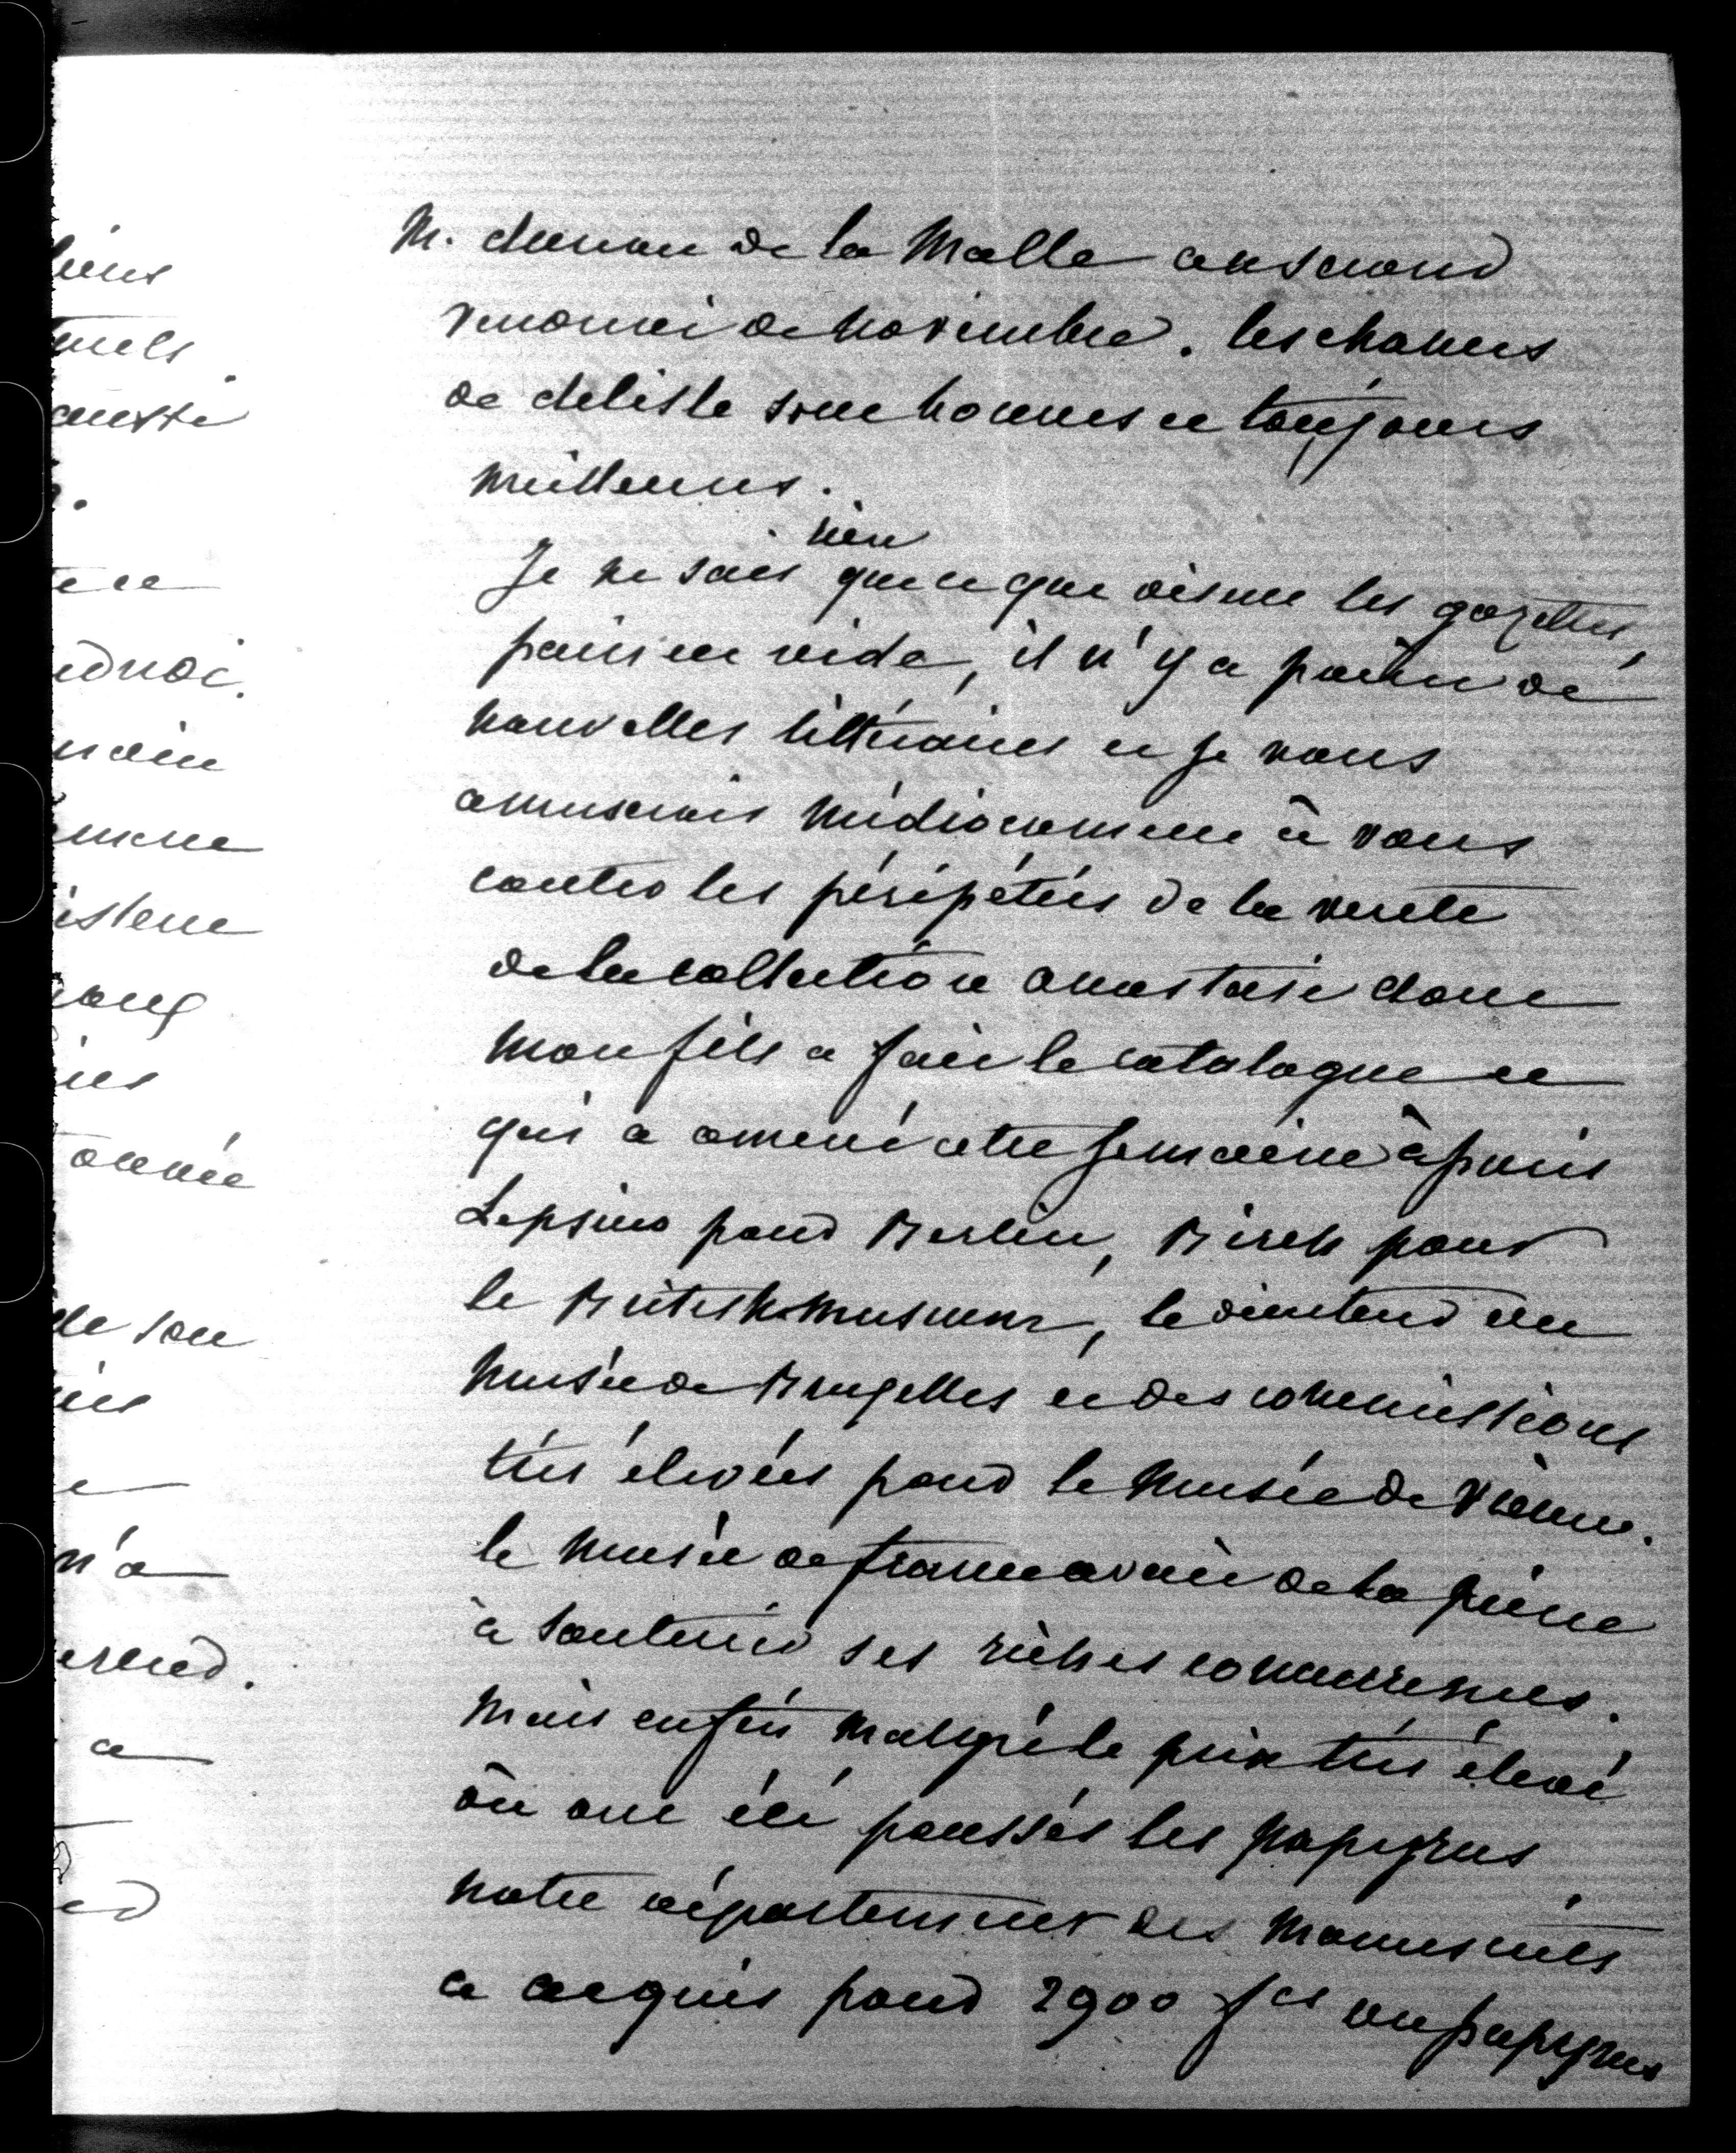 liens
tuels
aussi
te ce
main
istent
année
de son
n'a
a
M. dureau de la Malle au second
vendredi de Novembre. les chances
de delisle sont bonnes et toujours
meilleures.
rien
Je ne sais que ce que disent les gazettes,
paris est vide, il n'y a point de
nouvelles littéraires et je vous
amuserais médiocrement à vous
conter les péripéties de la vente
de la collection anastasi dont
mon fils a fait le catalogue et
qui a amené cette semaine à paris
Lepsius pour Berlin, Birch pour
le British museum, le directeur du
musée de Bruxelles et des commissions
très élevées pour le musée de Vienne.
le musée de france avait de la peine
à soutenir ses riches concurrences.
Mais enfin malgré le prix très élevé
où ont été poussés les papyrus
notre département des manuscrits
a acquis pour 2900 fcs un papyrus